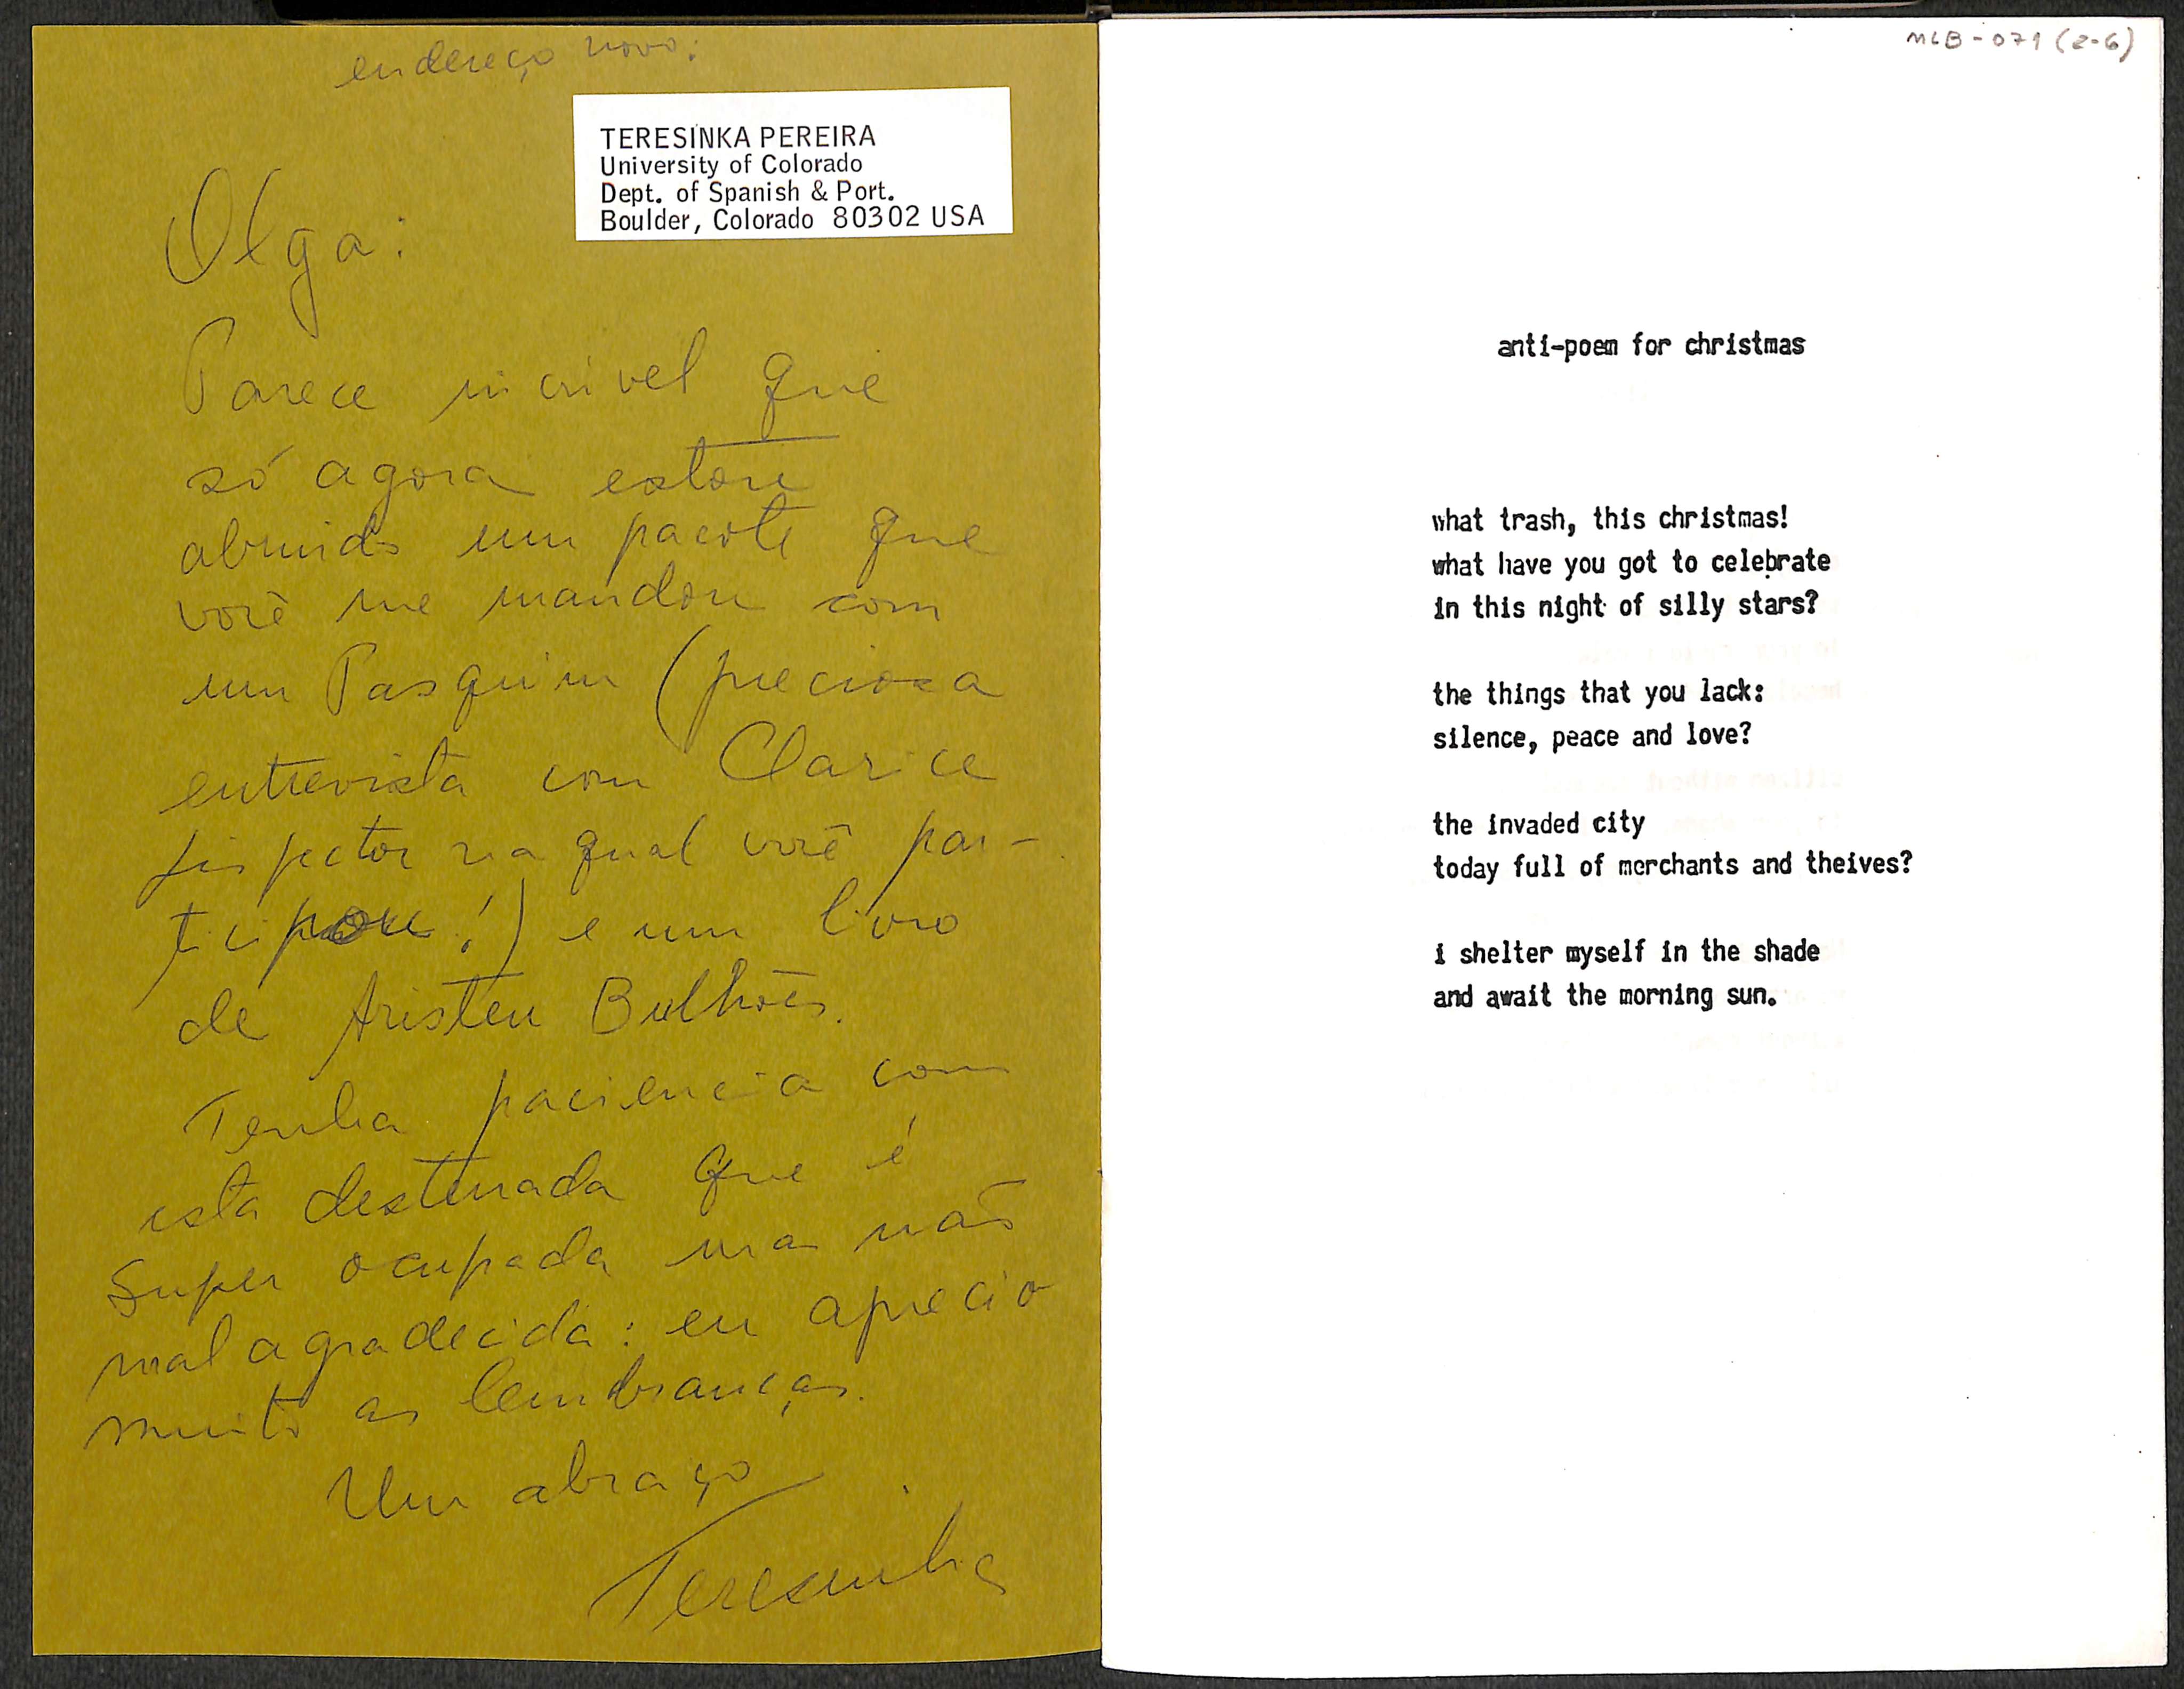 endereço novo:
TERESINKA PEREIRA
University of Colorado
Dept. of Spanish & Port.
Boulder, Colorado 80302 USA
Olga:
Parece incrivel que
só agora estou
abrindo um pacote que
você me mandou com
um Pasquim (preciosa
entrevista com Clarice
Lispector na qual você par-
ticipou!) e um livro
de Aristeu Bulhões.
Tenha paciencia com
esta desterrada que é
super ocupada ma não
mal agradecida: eu aprecio
muito as lembranças.
Um abraço
Teresinha
MLB-071 (2-6)
anti-poem for christmas
what trash, this christmas!
what have you got to celebrate
in this night of silly stars?
the things that you lack:
silence, peace and love?
the invaded city
today full of merchants and theives?
i shelter myself in the shade
and await the morning sun.